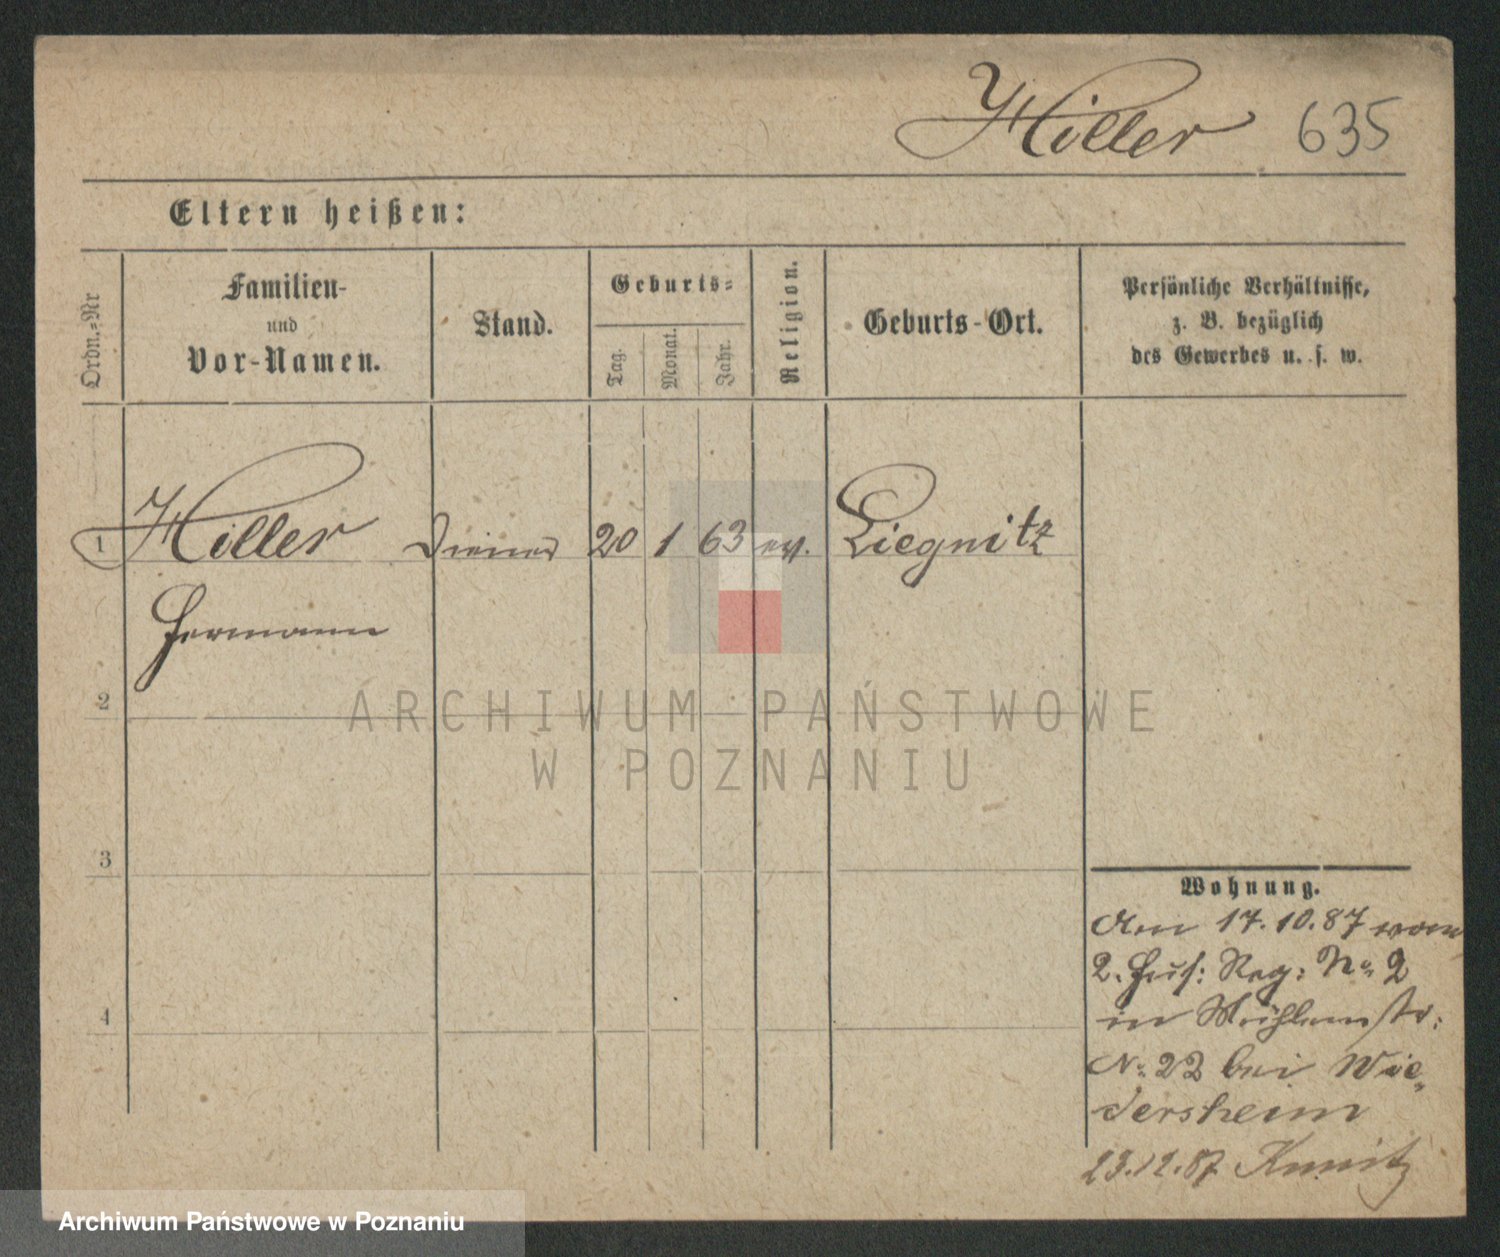 Hiller 635
Eltern heißen:
Ordn.=Nr
Familien-
und
Vor-Namen.
Stand.
Geburts=
Tag.
Monat.
Jahr.
Religion.
Geburts-Ort.
Persönliche Verhältnisse,
z. B. bezüglich
des Gewerbes u. s. w.
1 Hiller Diener 20 1 63 ev. Liegnitz
Hermann
2
ARCHIWUM PAŃSTWOWE
W POZNANIU
3
4
Wohnung.
Am 17.10.87 vom
2. Hus: Reg: No 2
in Mühlenstr:
No 22 bei Wie-
dersheim
23.12.87
Archiwum Państwowe w Poznaniu